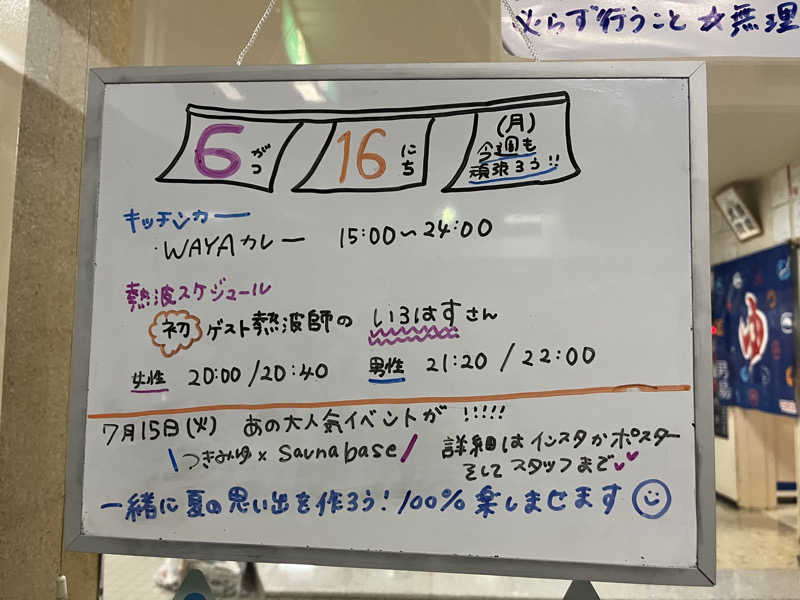 必らず行うこと ☆無理
6がつ 16にち (月)
今週も
頑張ろう!!
キッチンカー
・WAYAカレー 15:00〜24:00
熱波スケジュール
初 ゲスト熱波師の いろはすさん
女性 20:00/20:40 男性 21:20/22:00
7月15日(火) あの大人気イベントが!!!!!
\つきみゆ×Saunabase/ 詳細はインスタかポスター
そしてスタッフまで♥♥
一緒に夏の思い出を作ろう!100%楽しませます☺
ゆ